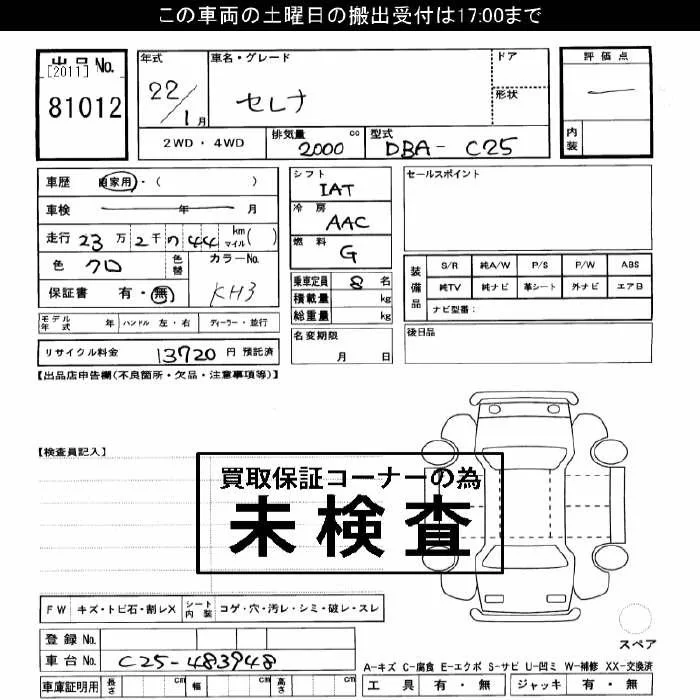 この車両の土曜日の搬出受付は17:00まで
出品No.
[2011]
81012
年式
22/1月
車名・グレード
セレナ
ドア
形状
評価点
内装
2WD・4WD
排気量 2000 cc
型式 DBA-C25
車歴 自家用・( )
車検 年 月
走行 23万2千044 km マイル( )
色 クロ
色替
カラーNo. KH3
保証書 有・無
モデル年式 年
ハンドル 左・右
ディーラー・並行
リサイクル料金 13720円 預託済
シフト IAT
冷房 AAC
燃料 G
乗車定員 8名
積載量 kg
総重量 kg
名変期限
月 日
セールスポイント
装備品
S/R 純A/W P/S P/W ABS
純TV 純ナビ 革シート 外ナビ エアB
ナビ型番:
後日品
【出品店申告欄(不良箇所・欠品・注意事項等)】
【検査員記入】
買取保証コーナーの為
未検査
FW キズ・トビ石・割レX
シート内装 コゲ・穴・汚レ・シミ・破レ・スレ
登録No.
車台No. C25-483948
車庫証明用 長さ cm 幅 cm 高さ cm
スペア
A-キズ C-腐食 E-エクボ S-サビ U-凹ミ W-補修 XX-交換済
工具 有・無 ジャッキ 有・無